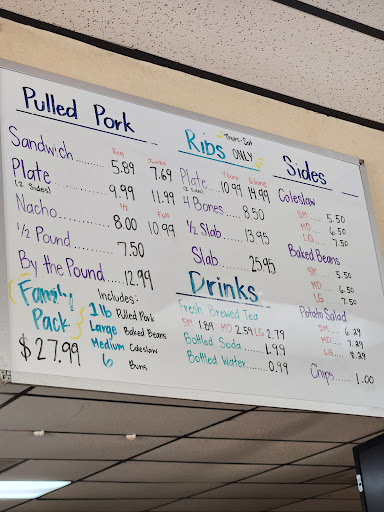 Pulled Pork
Reg Jumbo
Sandwich..... 5.89 7.69
Plate..... 9.99 11.99
(2 Sides)
1/2 Full
Nacho........ 8.00 10.99
1/2 Pound..... 7.50
By the Pound..... 12.99
Family Pack
$27.99
Includes:
1lb Pulled Pork
Large Baked Beans
Medium Coleslaw
6 Buns
Ribs Thurs-Sat ONLY
4 bone 6 bone
Plate 10.99 14.99
(2 Sides)
4 Bones.... 8.50
1/2 Slab..... 13.95
Slab..... 25.95
Drinks
Fresh Brewed Tea
SM 1.89 MD 2.59 LG 2.79
Bottled Soda.... 1.99
Bottled Water..... 0.99
Sides
Coleslaw
SM.... 5.50
MD.... 6.50
LG.... 7.50
Baked Beans
SM.... 5.50
MD.... 6.50
LG.... 7.50
Potato Salad
SM.... 6.29
MD.... 7.29
LG.... 8.29
Chips.... 1.00